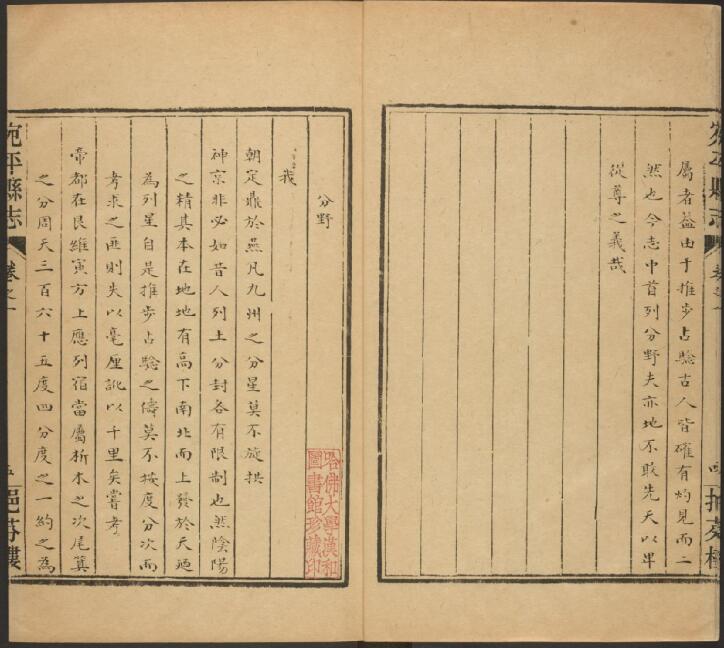 屬者益由于推步占驗古人皆確有灼見而二
然也今志中首列分野夫亦地不敢先天以卑
從尊之義哉
分野
我
朝定鼎於燕凡九州之分星莫不旋拱
神京非必如昔人列土分封各有限制也然陰陽
之精其本在地地有高下南北而上發於天廼
為列星自是推步占驗之儔莫不按度分次而
考求之亟則失以毫厘訛以千里矣嘗考
帝都在艮維寅方上應列宿當屬析木之次尾箕
之分周天三百六十五度四分度之一約之為
宛平縣志
卷之一
五
挹芬樓
宛平縣志
卷之一
四
挹芬樓
哈佛大學漢和
圖書館珍藏印